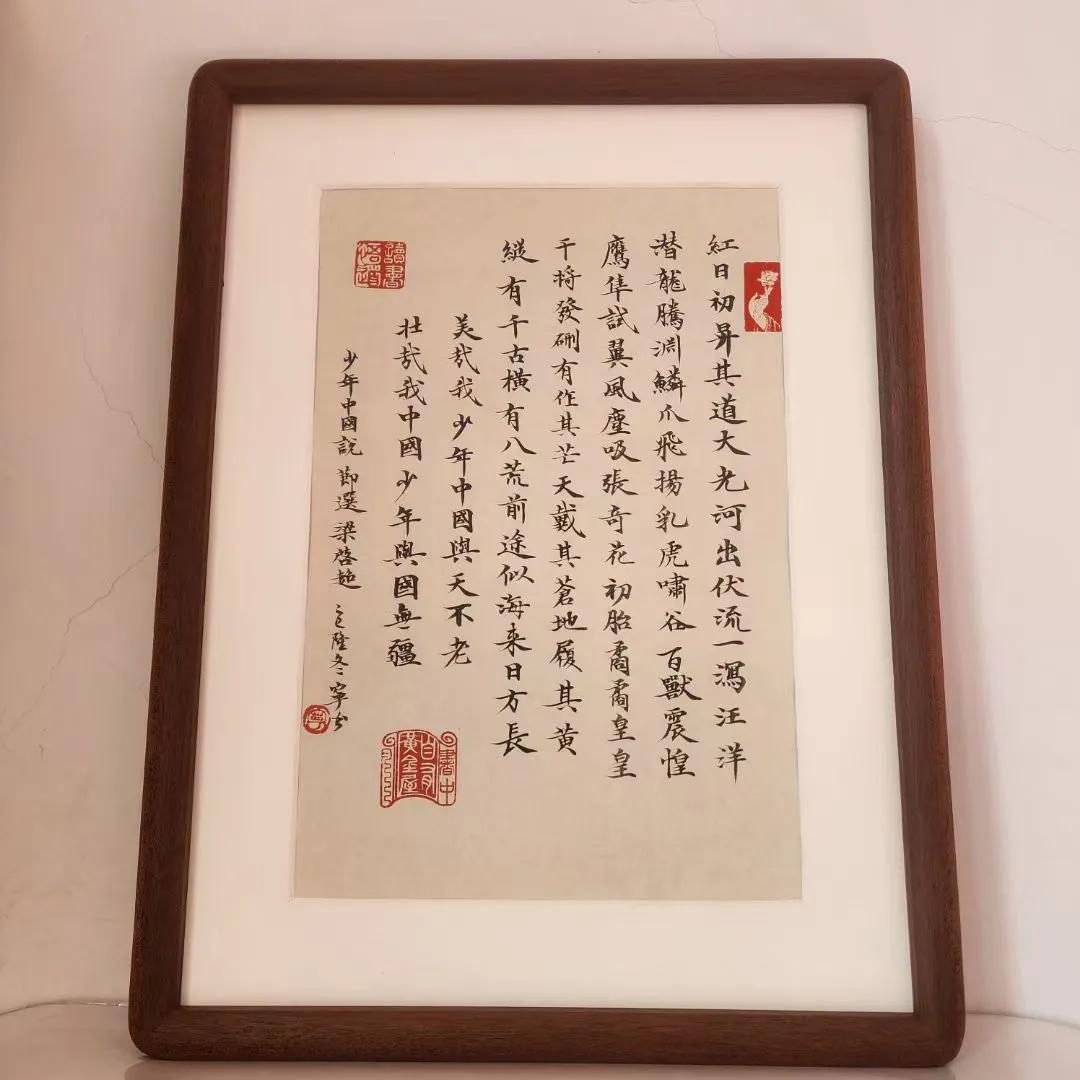 紅日初昇其道大光河出伏流一瀉汪洋
潛龍騰淵鱗爪飛揚乳虎嘯谷百獸震惶
鷹隼試翼風塵吸張奇花初胎矞矞皇皇
干將發硎有作其芒天戴其蒼地履其黃
縱有千古橫有八荒前途似海来日方長
美哉我少年中國與天不老
壯哉我中國少年與國無疆
少年中國説 節選 梁啓超 隆冬寧书
讀書悟道
書中自有黃金屋